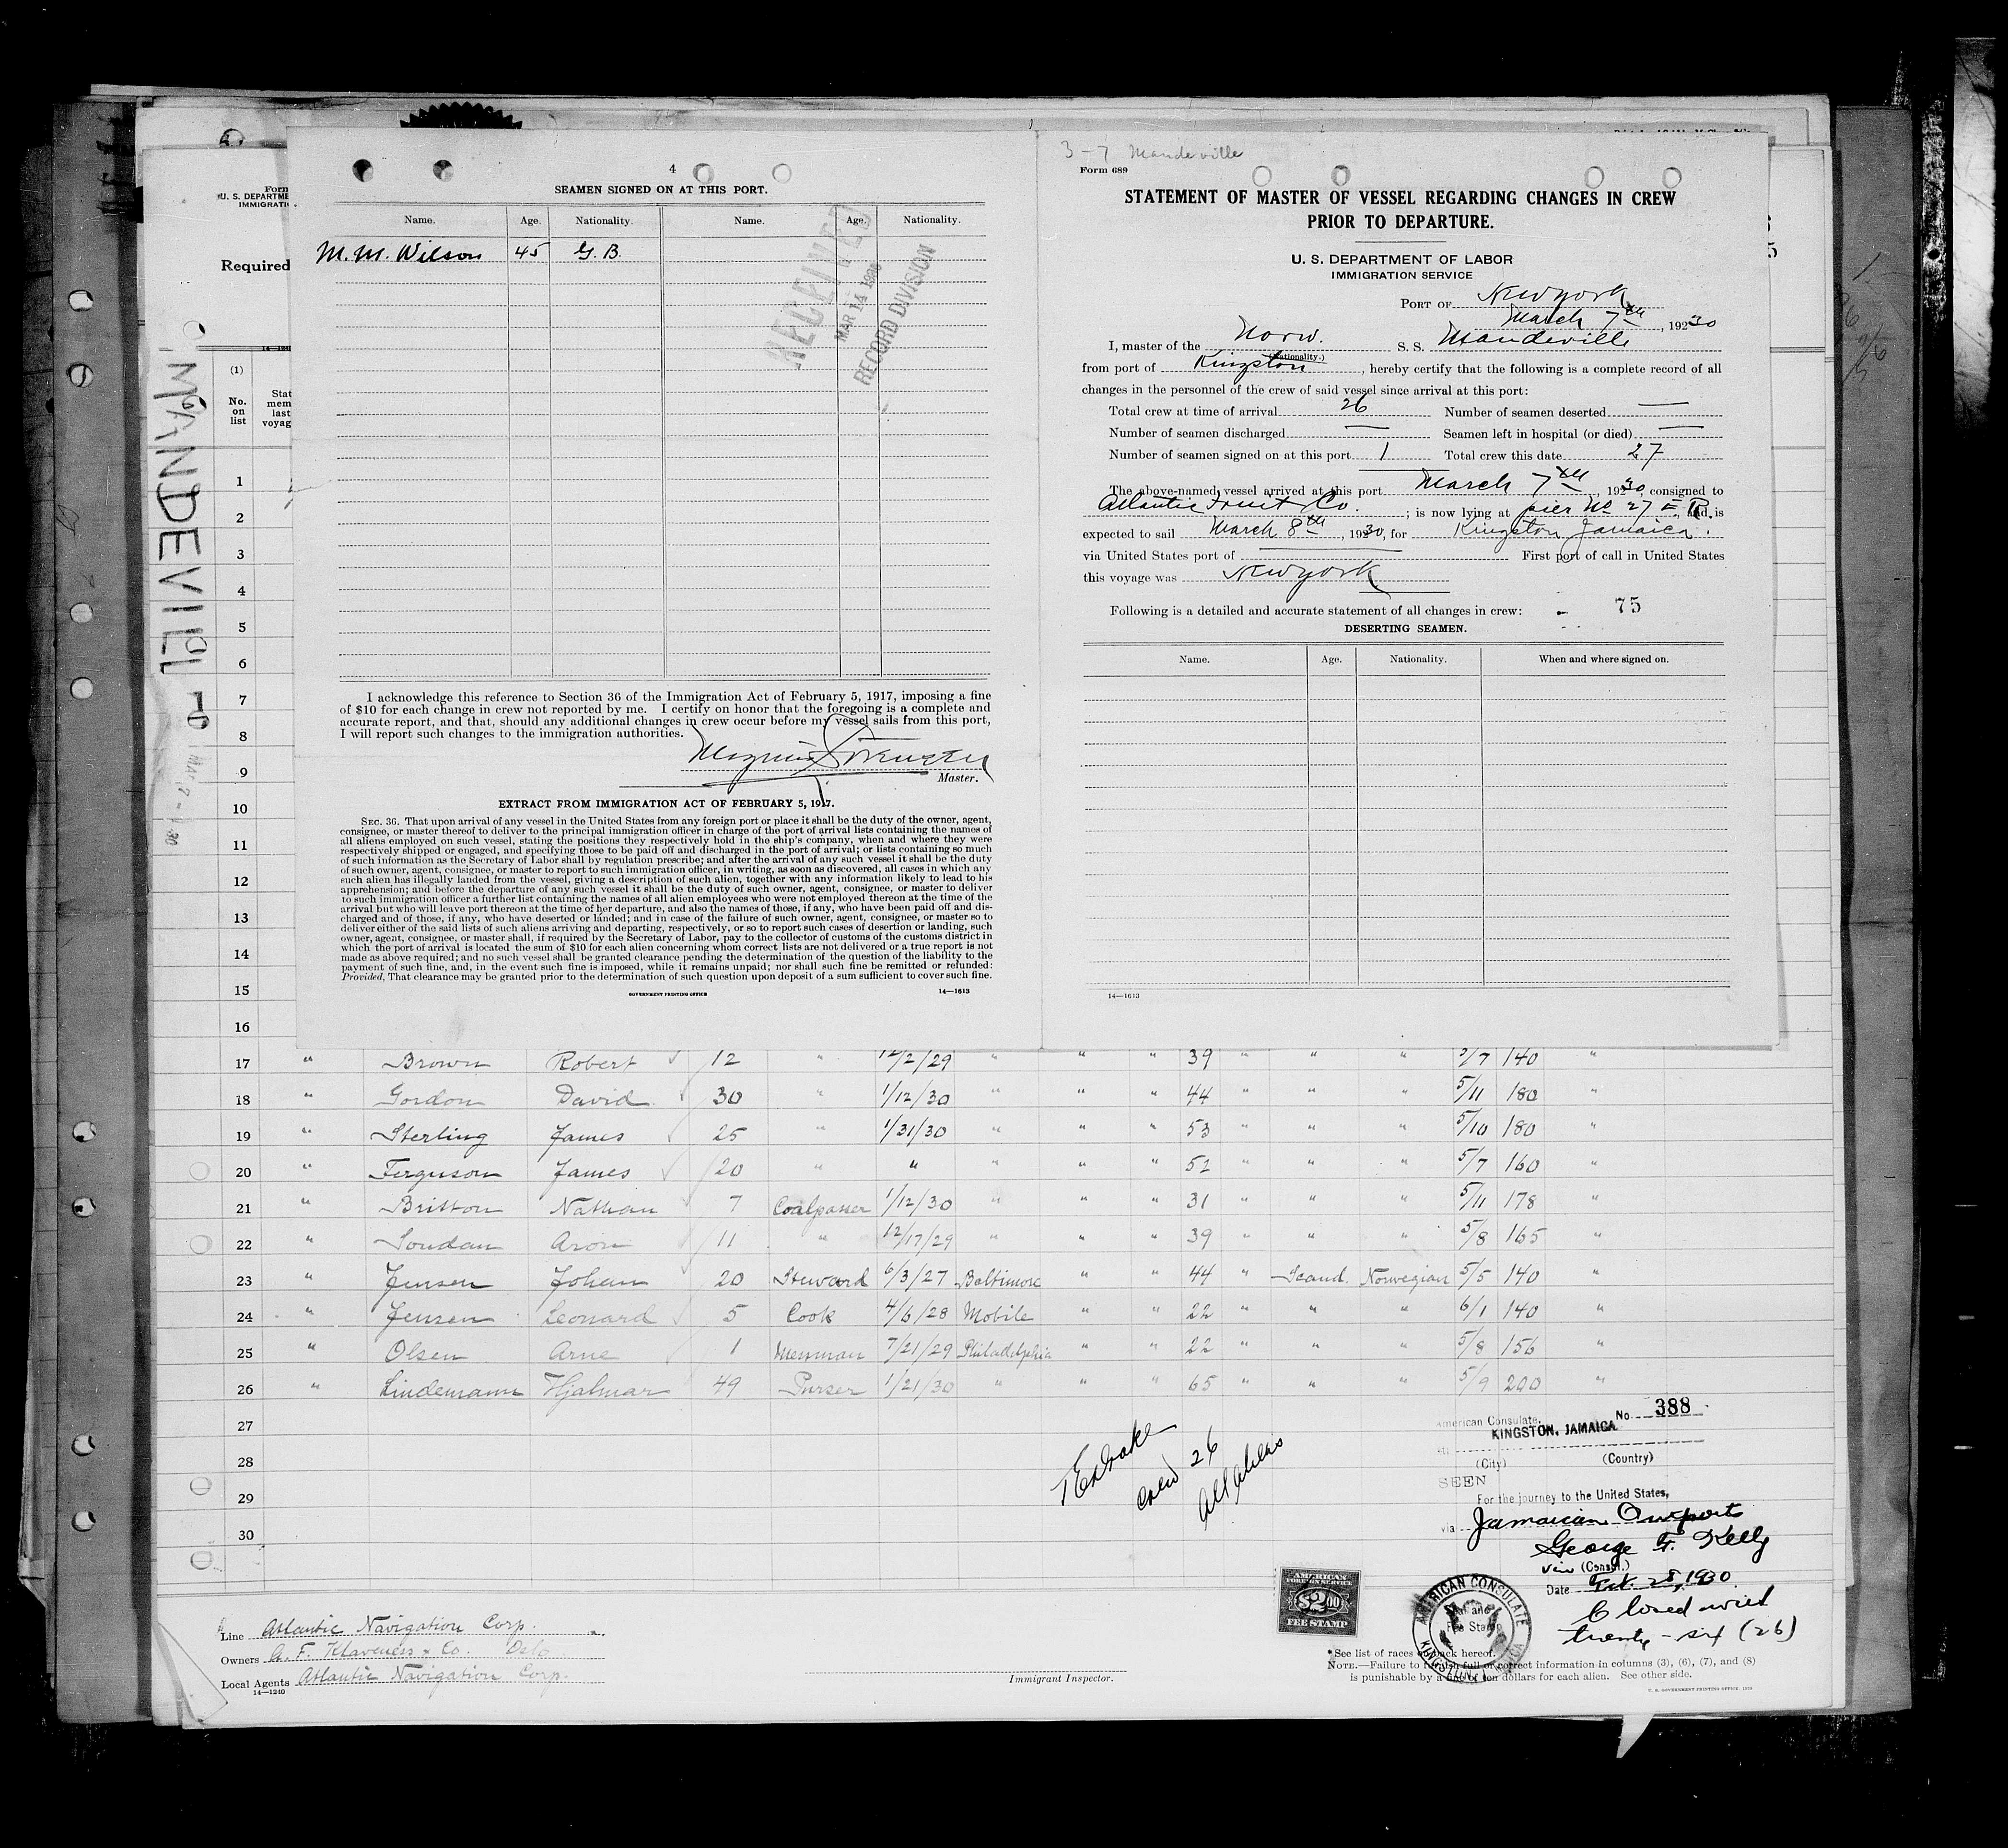 4
SEAMEN SIGNED ON AT THIS PORT.
Name. Age. Nationality. Name. Age. Nationality.
M. M. Wilson 45 G. B.
RECEIVED
MAR 14 1930
RECORD DIVISION
I acknowledge this reference to Section 36 of the Immigration Act of February 5, 1917, imposing a fine
of $10 for each change in crew not reported by me. I certify on honor that the foregoing is a complete and
accurate report, and that, should any additional changes in crew occur before my vessel sails from this port,
I will report such changes to the immigration authorities.
Master.
EXTRACT FROM IMMIGRATION ACT OF FEBRUARY 5, 1917.
SEC. 36. That upon arrival of any vessel in the United States from any foreign port or place it shall be the duty of the owner, agent,
consignee, or master thereof to deliver to the principal immigration officer in charge of the port of arrival lists containing the names of
all aliens employed on such vessel, stating the positions they respectively hold in the ship's company, when and where they were
respectively shipped or engaged, and specifying those to be paid off and discharged in the port of arrival; or lists containing so much
of such information as the Secretary of Labor shall by regulation prescribe; and after the arrival of any such vessel it shall be the duty
of such owner, agent, consignee, or master to report to such immigration officer, in writing, as soon as discovered, all cases in which any
such alien has illegally landed from the vessel, giving a description of such alien, together with any information likely to lead to his
apprehension; and before the departure of any such vessel it shall be the duty of such owner, agent, consignee, or master to deliver
to such immigration officer a further list containing the names of all alien employees who were not employed thereon at the time of the
arrival but who will leave port thereon at the time of her departure, and also the names of those, if any, who have been paid off and dis-
charged and of those, if any, who have deserted or landed; and in case of the failure of such owner, agent, consignee, or master so to
deliver either of the said lists of such aliens arriving and departing, respectively, or so to report such cases of desertion or landing, such
owner, agent, consignee, or master shall, if required by the Secretary of Labor, pay to the collector of customs of the customs district in
which the port of arrival is located the sum of $10 for each alien concerning whom correct lists are not delivered or a true report is not
made as above required; and no such vessel shall be granted clearance pending the determination of the question of the liability to the
payment of such fine, and, in the event such fine is imposed, while it remains unpaid; nor shall such fine be remitted or refunded:
Provided, That clearance may be granted prior to the determination of such question upon deposit of a sum sufficient to cover such fine.
GOVERNMENT PRINTING OFFICE 14—1613
3-7 Mandeville
Form 689
STATEMENT OF MASTER OF VESSEL REGARDING CHANGES IN CREW
PRIOR TO DEPARTURE.
U. S. DEPARTMENT OF LABOR
IMMIGRATION SERVICE
PORT OF New york
March 7th, 19230
I, master of the Norw. S. S. Mandeville
(Nationality.)
from port of Kingston, hereby certify that the following is a complete record of all
changes in the personnel of the crew of said vessel since arrival at this port:
Total crew at time of arrival 26 Number of seamen deserted —
Number of seamen discharged — Seamen left in hospital (or died) —
Number of seamen signed on at this port 1 Total crew this date 27
The above-named vessel arrived at this port March 7th, 19230, consigned to
Atlantic Fruit Co. ; is now lying at pier No 27 E R., and is
expected to sail March 8th, 1930, for Kingston Jamaica.
via United States port of First port of call in United States
this voyage was New york
Following is a detailed and accurate statement of all changes in crew: - 75
DESERTING SEAMEN.
Name. Age. Nationality. When and where signed on.
14—1613
Form
U. S. DEPARTME
IMMIGRATI
Required
14—1240
(1)
No. on list
Stat
mem
last
voyag
MANDEVILLE
1
2
3
4
5
6
7
8
9
10
11
12
13
14
15
16
17 " Brown Robert 12 " 12/2/29 " " " 39 " " " 5/7 140 "
18 " Gordon David 30 " 1/12/30 " " " 44 " " " 5/11 180 "
19 " Sterling James 25 " 1/31/30 " " " 53 " " " 5/10 180 "
20 " Ferguson James 20 " " " " " 52 " " " 5/7 160 "
21 " Britton Nathan 7 Coalpasser 1/12/30 " " " 31 " " " 5/11 178 "
22 " Soudan Aron 11 " 12/17/29 " " " 39 " " " 5/8 165 "
23 " Jensen Johan 20 Steward 6/3/27 Baltimore " " 44 " Scand. Norwegian 5/5 140 "
24 " Jensen Leonard 5 Cook 4/6/28 Mobile " " 22 " " " 6/1 140 "
25 " Olsen Arne 1 Messman 7/21/29 Philadelphia " " 22 " " " 5/8 156 "
26 " Lindemann Hjalmar 49 Purser 1/21/30 " " " 65 " " " 5/9 200 "
27
28
29
30
Crew 26
American Consulate,
No. 388
KINGSTON, JAMAICA
(City) (Country)
SEEN
For the journey to the United States,
via Jamaican Outports
George F. Kelly
Vice (Consul.)
Date Feb. 28, 1930.
Closed with
twenty-six (26)
AMERICAN
FOREIGN SERVICE
$2.00
FEE STAMP
AMERICAN CONSULATE
KINGSTON, JAMAICA
Line Atlantic Navigation Corp.
Owners A. F. Klaveness & Co. Oslo
Local Agents Atlantic Navigation Corp.
14—1240
Immigrant Inspector.
*See list of races on back hereof.
NOTE.—Failure to furnish full or correct information in columns (3), (6), (7), and (8)
is punishable by a fine of ten dollars for each alien. See other side.
U. S. GOVERNMENT PRINTING OFFICE